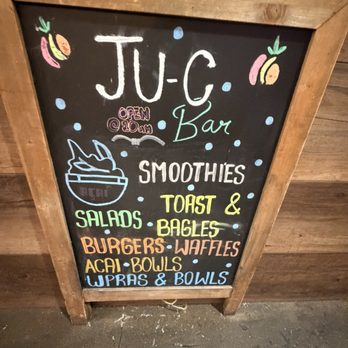 JU-C
OPEN
Bar
ACAI
SMOOTHIES
TOAST &
SALADS • BAGLES
BURGERS • WAFFLES
ACAI • BOWLS
WPRAS & BOWLS